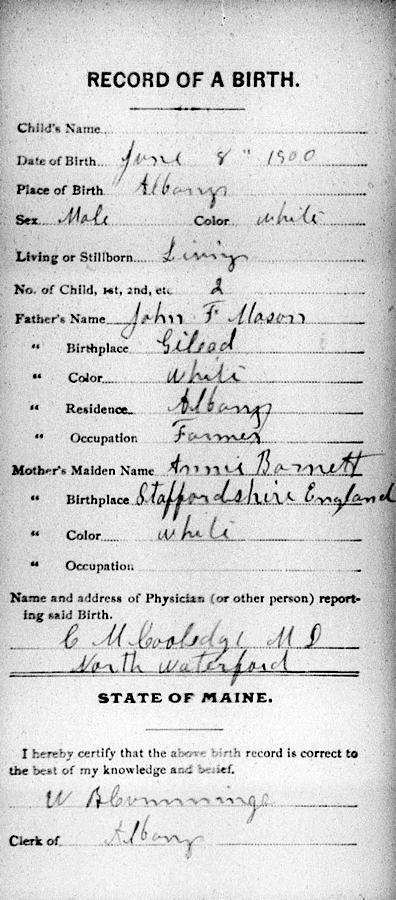 RECORD OF A BIRTH.
Child's Name
Date of Birth June 8" 1900
Place of Birth Albany
Sex Male Color white
Living or Stillborn Living
No. of Child, 1st, 2nd, etc 2
Father's Name John F Mason
" Birthplace Gilead
" Color white
" Residence Albany
" Occupation Farmer
Mother's Maiden Name Annie Barnett
" Birthplace Staffordshire England
" Color white
" Occupation
Name and address of Physician (or other person) report-
ing said Birth.
C M Cooledge M D
North Waterford
STATE OF MAINE.
I hereby certify that the above birth record is correct to
the best of my knowledge and belief.
W B Cummings
Clerk of Albany